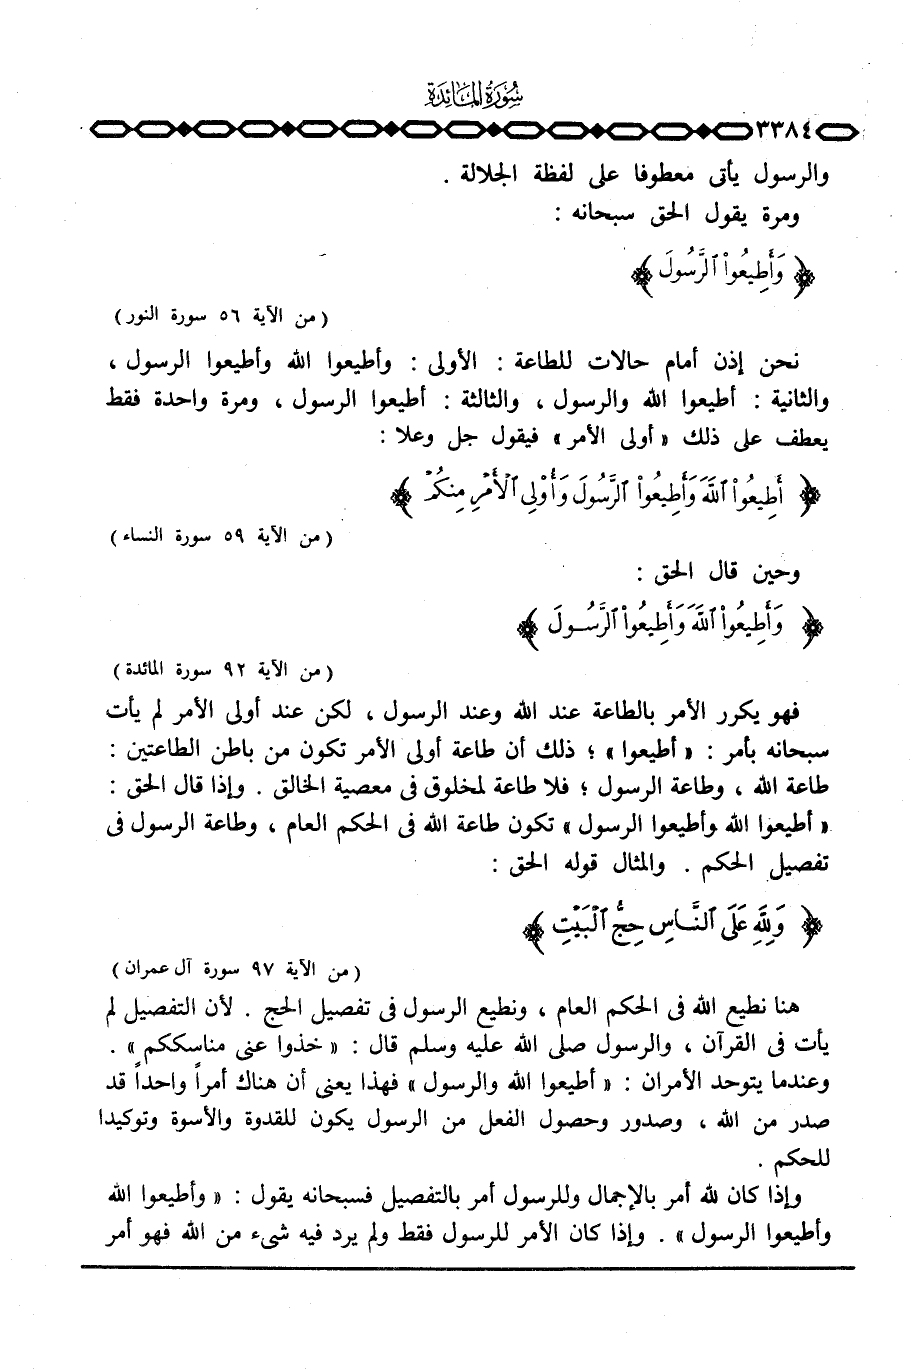 سُورَةُ المَائِدَةِ
٣٣٨٤
والرسول يأتى معطوفا على لفظة الجلالة .
ومرة يقول الحق سبحانه :
﴿ وَأَطِيعُواْ ٱلرَّسُولَ ﴾
( من الآية ٥٦ سورة النور )
نحن إذن أمام حالات للطاعة : الأولى : وأطيعوا الله وأطيعوا الرسول ،
والثانية : أطيعوا الله والرسول ، والثالثة : أطيعوا الرسول ، ومرة واحدة فقط
يعطف على ذلك « أولى الأمر » فيقول جل وعلا :
﴿ أَطِيعُواْ ٱللَّهَ وَأَطِيعُواْ ٱلرَّسُولَ وَأُوْلِى ٱلْأَمْرِ مِنكُمْ ﴾
( من الآية ٥٩ سورة النساء )
وحين قال الحق :
﴿ وَأَطِيعُواْ ٱللَّهَ وَأَطِيعُواْ ٱلرَّسُولَ ﴾
( من الآية ٩٢ سورة المائدة )
فهو يكرر الأمر بالطاعة عند الله وعند الرسول ، لكن عند أولى الأمر لم يأت
سبحانه بأمر : « أطيعوا » ؛ ذلك أن طاعة أولى الأمر تكون من باطن الطاعتين :
طاعة الله ، وطاعة الرسول ؛ فلا طاعة لمخلوق فى معصية الخالق . وإذا قال الحق :
« أطيعوا الله وأطيعوا الرسول » تكون طاعة الله فى الحكم العام ، وطاعة الرسول فى
تفصيل الحكم . والمثال قوله الحق :
﴿ وَلِلَّهِ عَلَى ٱلنَّاسِ حِجُّ ٱلْبَيْتِ ﴾
( من الآية ٩٧ سورة آل عمران )
هنا نطيع الله فى الحكم العام ، ونطيع الرسول فى تفصيل الحج . لأن التفصيل لم
يأت فى القرآن ، والرسول صلى الله عليه وسلم قال : « خذوا عنى مناسككم » .
وعندما يتوحد الأمران : « أطيعوا الله والرسول » فهذا يعنى أن هناك أمراً واحداً قد
صدر من الله ، وصدور وحصول الفعل من الرسول يكون للقدوة والأسوة وتوكيدا
للحكم .
وإذا كان لله أمر بالإجمال وللرسول أمر بالتفصيل فسبحانه يقول : « وأطيعوا الله
وأطيعوا الرسول » . وإذا كان الأمر للرسول فقط ولم يرد فيه شىء من الله فهو أمر